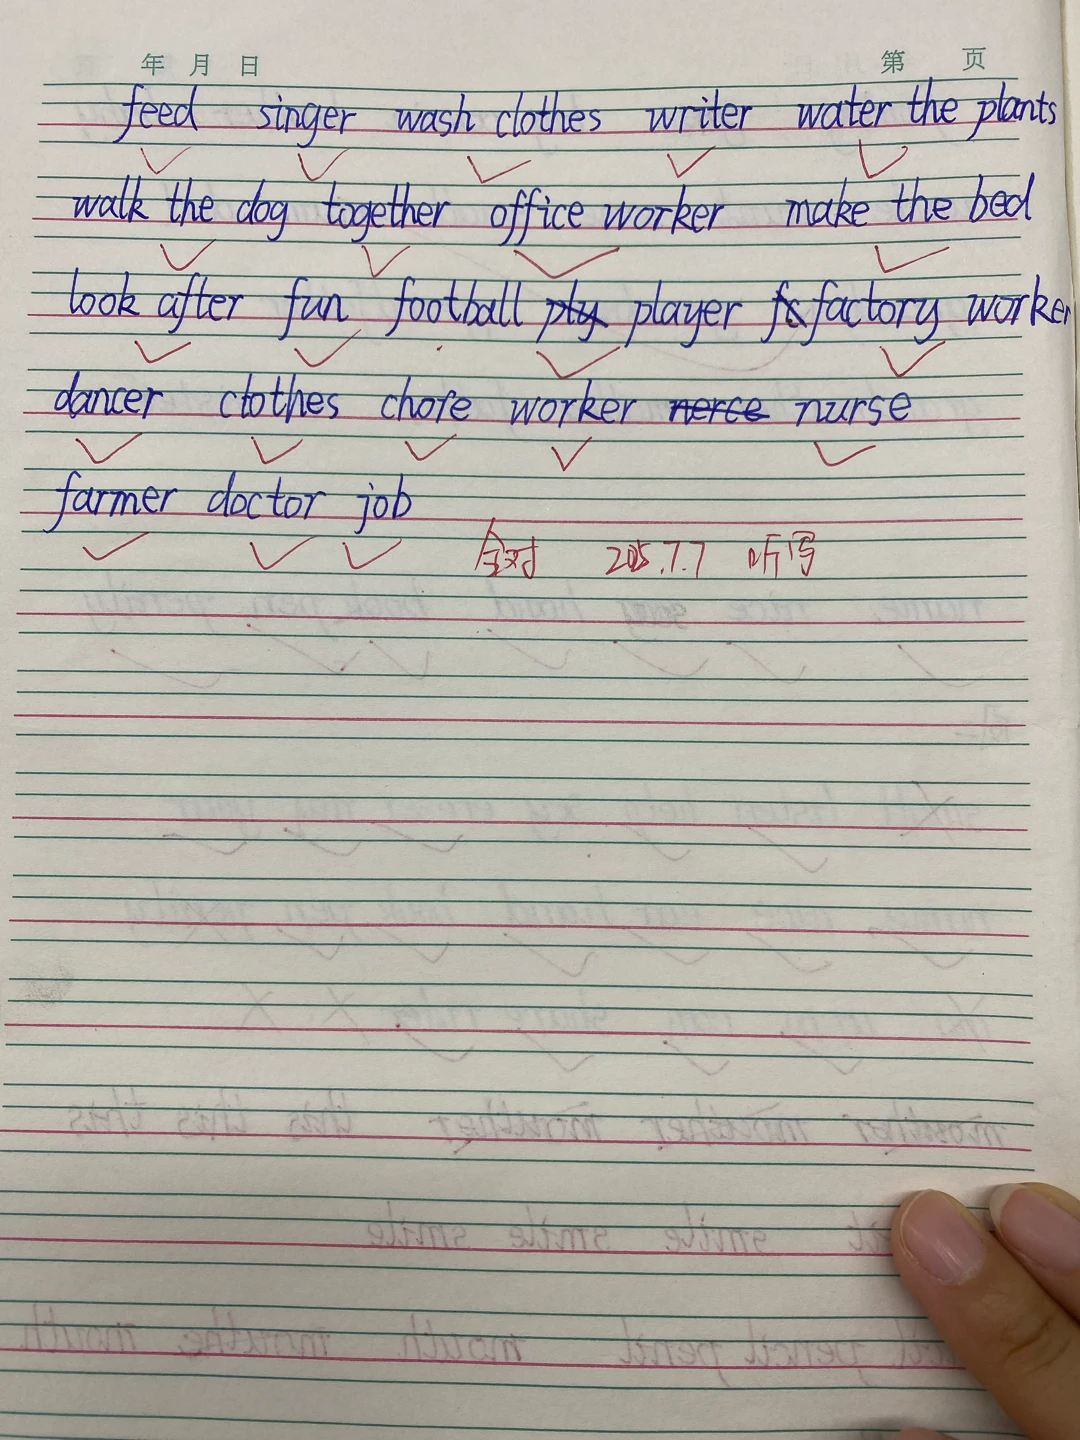 年 月 日 第 页
feed singer wash clothes writer water the plants
walk the dog together office worker make the bed
look after fun football ply player fa factory worker
dancer clothes chore worker nerce nurse
farmer doctor job
全对 2025.7.7 听写